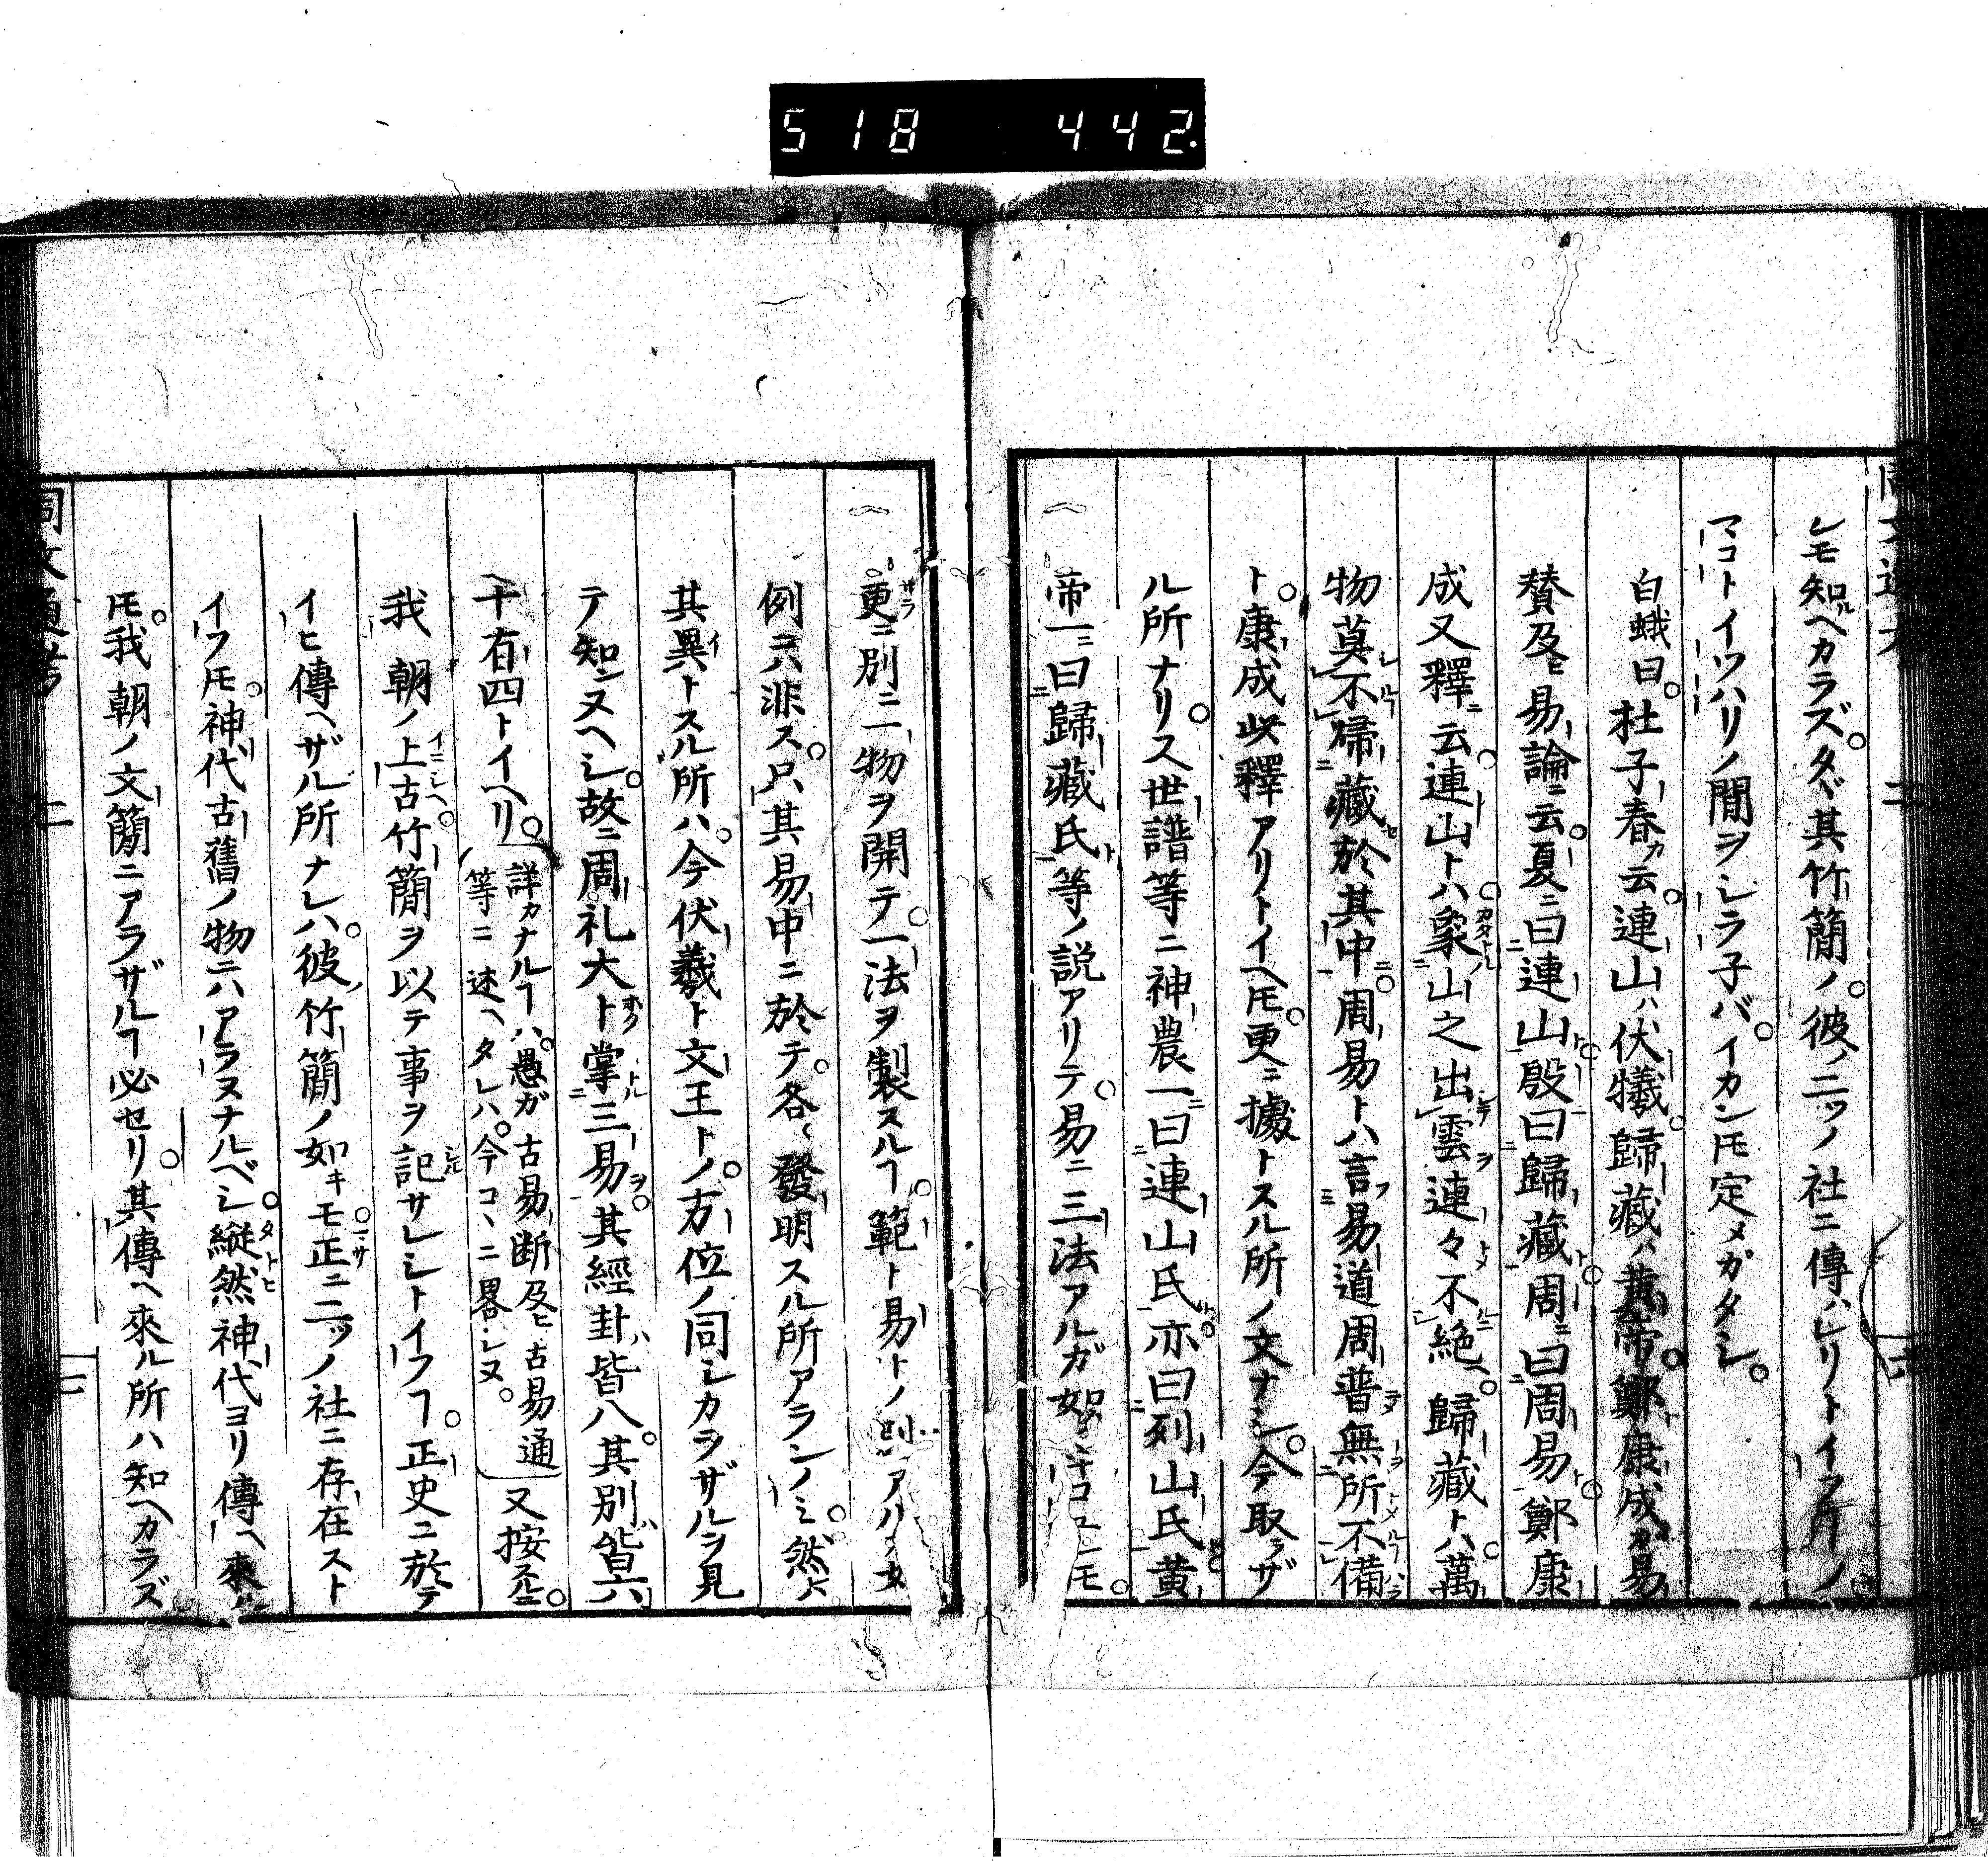 518 442.
レモ知ルヘカラズ。タヾ其竹簡ノ。彼ノ二ツノ社ニ傳ハレリトイフ片ノ。
マコトイツハリノ間ヲシラ子バ。イカンモ定メガタシ。
白蛾曰。杜子春カ云。連山ハ伏犧。歸藏ハ黄帝。鄭康成カ易
賛及ヒ易論ニ云。夏ニ曰連山ト。殷曰歸藏ト。周ニ曰周易ト。鄭康
成又釋云。連山トハ。象山之出雲連々不絶。歸藏トハ。萬
物莫不歸藏於其中。周易トハ言易道周普無所不備
ト。康成此釋アリトイヘ𪜈。更ニ據トスル所ノ文ナシ。今取ラザ
ル所ナリ。ス世譜等ニ神農一曰連山氏。亦曰列山氏黄
帝一曰歸藏氏等ノ説アリテ。易ニ三法アルガ如
更ニ別ニ二物ヲ開テ。一法ヲ製スルヿ。範ト易トノ
例ニハ非ス。只其易中ニ於テ。各〻發明スル所アランノミ。然
其異トスル所ハ。今伏羲ト文王トノ。方位ノ同シカラザルヲ見
テ知ンヌヘシ。故ニ周礼大ト掌三易。其經卦皆八。其別皆六
十有四トイヘリ。(詳カナルヿハ。愚ガ古易断及ヒ古易通
等ニ述ヘタレハ。今コヽニ畧シヌ。)又按スルニ。
我朝ノ上古。竹簡ヲ以テ事ヲ記サレシトイフヿ。正史ニ於テ
イヒ傳ヘザル所ナレハ。彼竹簡ノ如キモ。正ニ二ツノ社ニ存在スト
イフ𪜈。神代古舊ノ物ニハアラヌナルベシ。縦然神代ヨリ傳ヘ來ル
𪜈。我朝ノ文簡ニアラザルヿ必セリ。其傳ヘ來ル所ハ知ヘカラズ